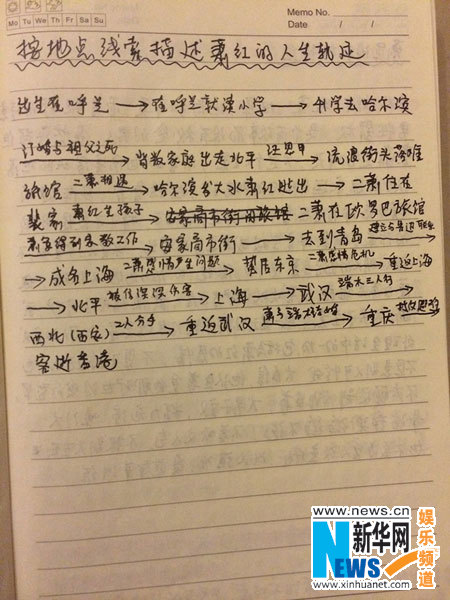 Memo No.
Mo Tu We Th Fr Sa Su
Date / /
按地点线索描述萧红的人生轨迹
出生在呼兰 → 在呼兰就读小学 → 升学去哈尔滨
订婚与祖父死 → 背叛家庭出走北平 汪恩甲 → 流浪街头落难
旅馆 二萧相遇 → 哈尔滨发大水萧红逃出 → 二萧住在
裴家 萧红生孩子 → 二萧在欧罗巴旅馆
萧军得到家教工作 → 安家商市街 → 去到青岛 建立与鲁迅联系
→ 成名上海 二萧感情产生问题 → 蛰居东京 二萧感情危机 → 重返上海
→ 北平 被伤深深伤害 → 上海 → 武汉 端木三人行
西北(西安) 2人分手 → 重返武汉 与端木结婚 → 重庆
客逝香港
www.news.cn
新华网
NEWS
www.xinhuanet.com
娱乐频道